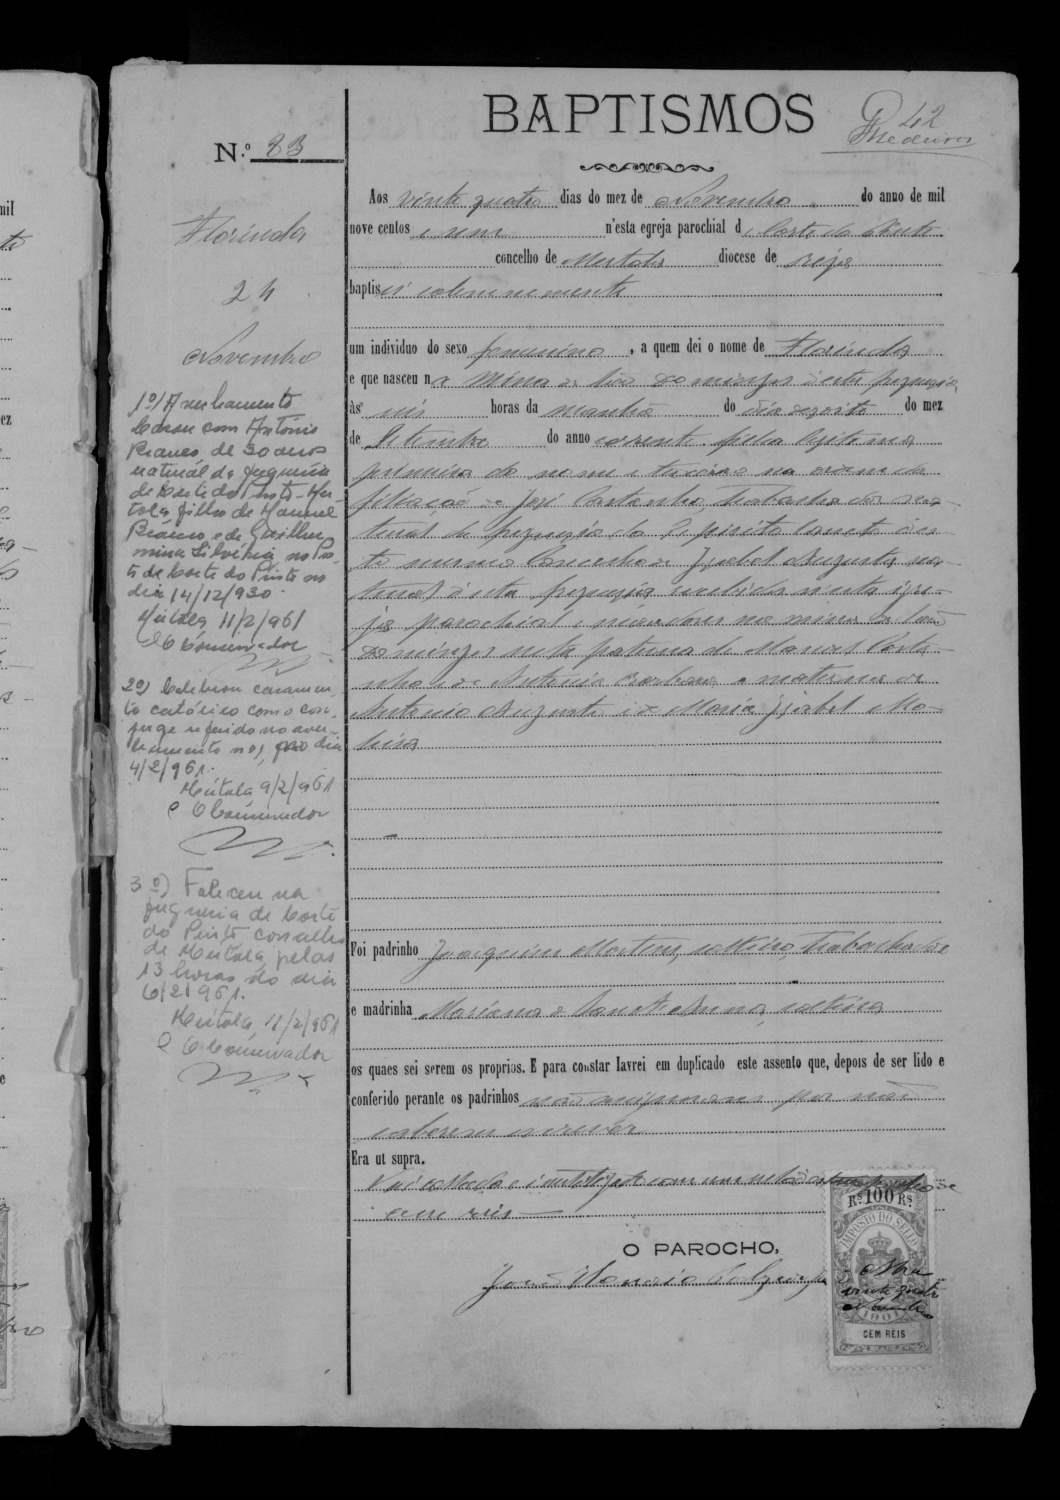 BAPTISMOS
42
Medeiros
N.º 83
Florinda
24
Novembro
1º) Averbamento
Casou com António
de 30 anos
natural da freguesia
de Corte do Pinto - Mér-
tola filho de Manuel
e de Guilher
mina Silvéria no Pos-
to de Corte do Pinto no
dia 14/12/930.
Mértola 11/2/961
O Conservador
2º) Celebrou casamen-
to católico com o côn-
juge referido no aver-
bamento nº 1, no dia
4/2/961.
Mértola 9/2/961
O Conservador
3º) Faleceu na
freguesia de Corte
do Pinto concelho
de Mértola pelas
13 horas do dia
6/2/961.
Mértola, 11/2/961
O Conservador
Aos vinte quatro dias do mez de Novembro do anno de mil
nove centos e um n'esta egreja parochial d e Corte do Pinto
concelho de Mertola diocese de Beja
baptisei solemnemente
um individuo do sexo femenino, a quem dei o nome de Florinda
e que nasceu na Mina de São Domingos d'esta freguezia,
às seis horas da manhã do dia dezoito do mez
de Setembro do anno corrente filha legitima
primeira do nome e terceira na ordem da
filiação de José Castanho, trabalhador na-
tural da freguezia do Espirito Santo d'es-
te mesmo Concelho e Izabel Augusta na-
tural d'esta freguezia recebidos nesta igre-
ja parochial e moradores na mina de São
Domingos neta paterna de Manoel Casta-
nho e de Antonia Barbara e materna de
Antonio Augusto e de Maria Izabel Mo-
reira
Foi padrinho Joaquim Martins, solteiro, trabalhador
e madrinha Mariana de Sant'Anna, solteira
os quaes sei serem os proprios. E para constar lavrei em duplicado este assento que, depois de ser lido e
conferido perante os padrinhos não assignaram por não
saberem escrever
Era ut supra.
Vai collada e inutilizada com um sello da de
cem reis
Rs 100 Rs
IMPOSTO DO SELLO
Era
vinte quatro
CEM REIS
O PAROCHO,
João